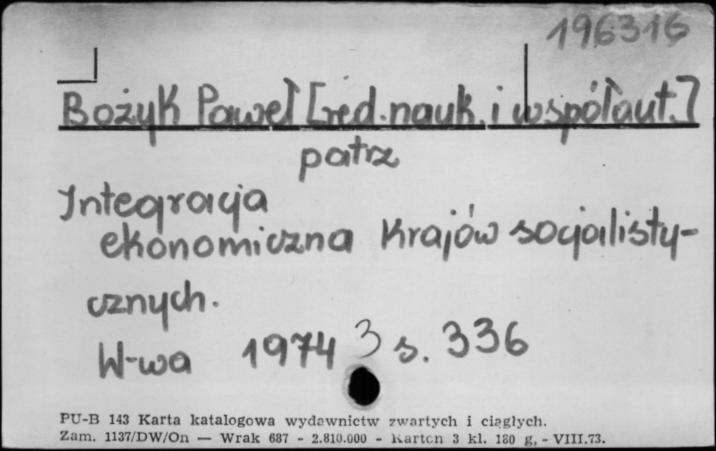 196316
Bożyk Paweł [red. nauk. i współaut.]
patrz
Integracja
ekonomiczna krajów socjalisty-
cznych.
W-wa 1974 3 s. 336
PU-B 143 Karta katalogowa wydawnictw zwartych i ciągłych.
Zam. 1137/DW/On — Wrak 687 - 2.810.000 - Karton 3 kl. 180 g, - VIII.73.